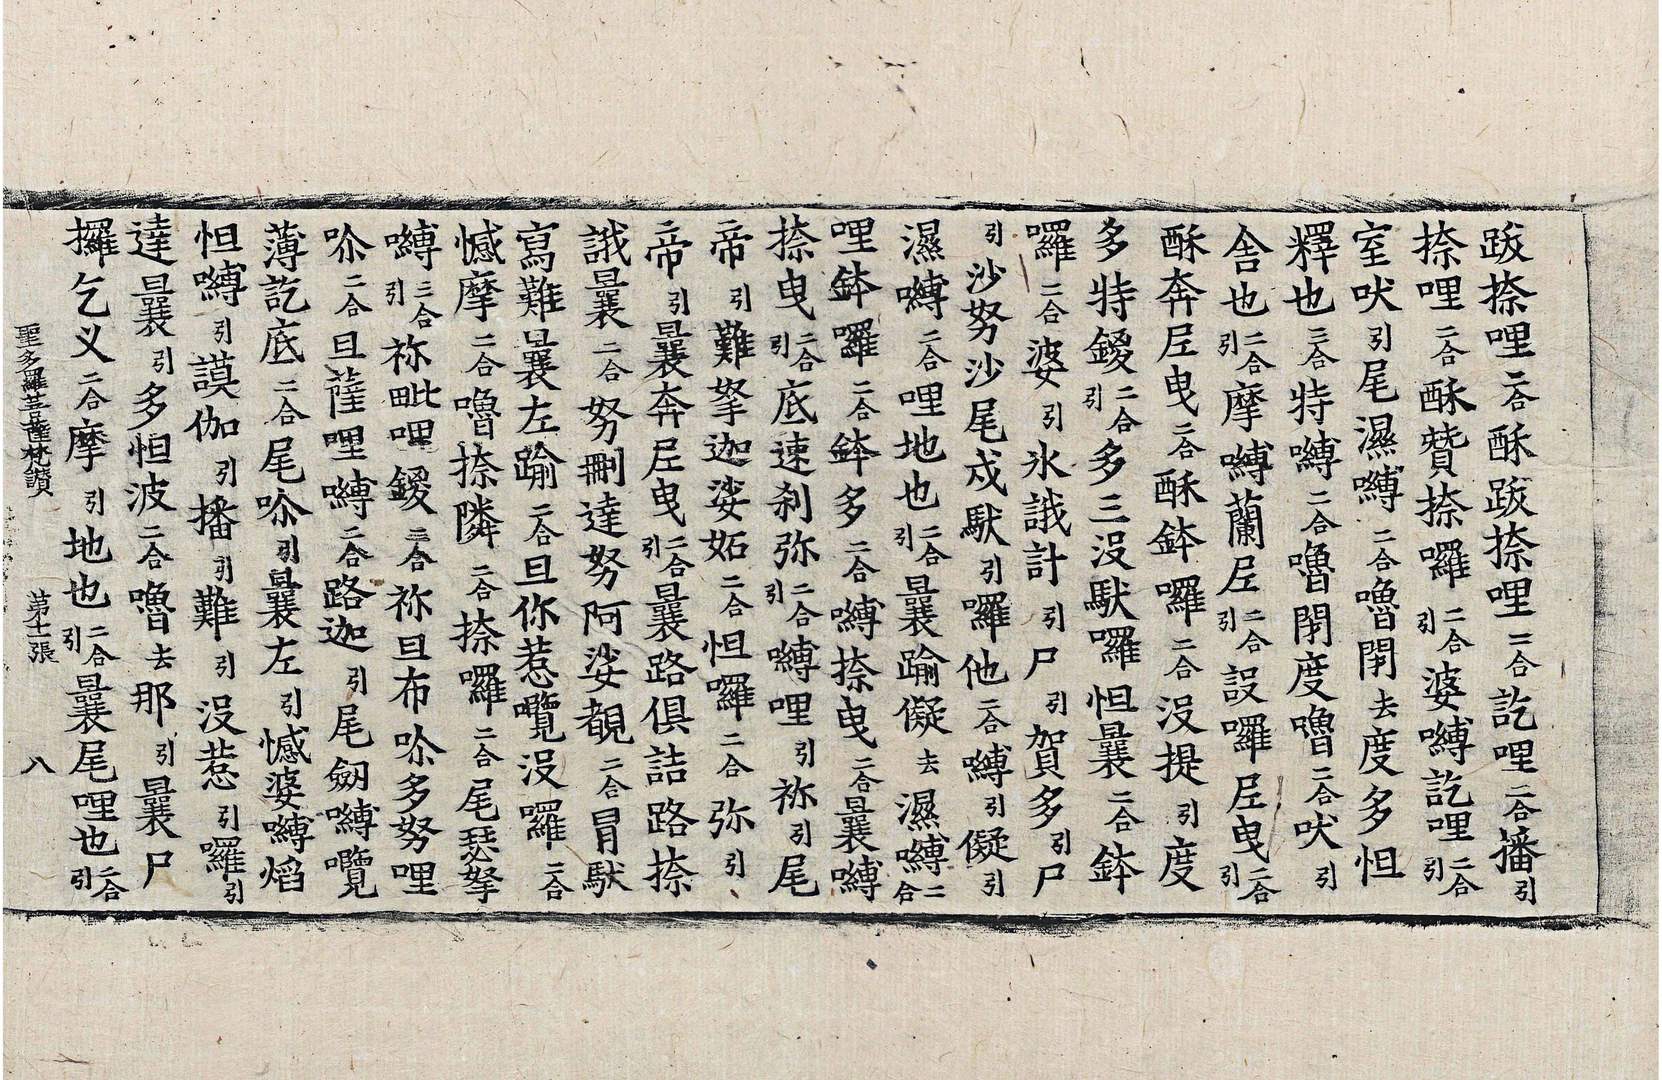 跋捺哩二合酥跋捺哩二合訖哩二合播引
捺哩二合酥贊捺囉二合引婆嚩訖哩二合引
室吠引尾濕嚩二合嚕閉去度多怛
釋也三合特嚩二合嚕閉度嚕二合吠引
舍也二合引摩嚩蘭𡰱二合引設囉𡰱曳二合引
酥奔𡰱曳二合酥鉢囉二合没提引度
多特鑁二合引多三没馱囉怛曩二合鉢
囉二合婆引氷誐計引尸引賀多引尸
引沙努沙尾戍馱引囉他二合嚩引儗引
濕嚩二合哩地也二合引曩踰儗去濕嚩二合
哩鉢囉二合鉢多二合嚩捺曳二合曩嚩
捺曳二合引底速刹弥二合引嚩哩引祢引尾
帝引難拏迦娑妬二合怛囉二合弥引
帝引曩奔𡰱曳二合引曩路俱詰路捺
誐曩二合努刪達努阿娑覩二合冐馱
寫難曩左踰二合旦你惹囕没囉二合
憾摩二合嚕捺隣二合捺囉二合尾瑟拏
嚩三合引祢毗哩鑁三合祢旦布尒多努哩
尒二合旦薩哩嚩二合路迦引尾劒嚩囕
薄訖底二合尾尒引曩左引憾婆嚩焰
怛嚩引謨伽引播引難引没惹引囉引
達曩引多怛波二合嚕去那引曩尸
攞乞义二合摩引地也二合引曩尾哩也二合引
聖多羅菩薩梵讃 第十一張 八